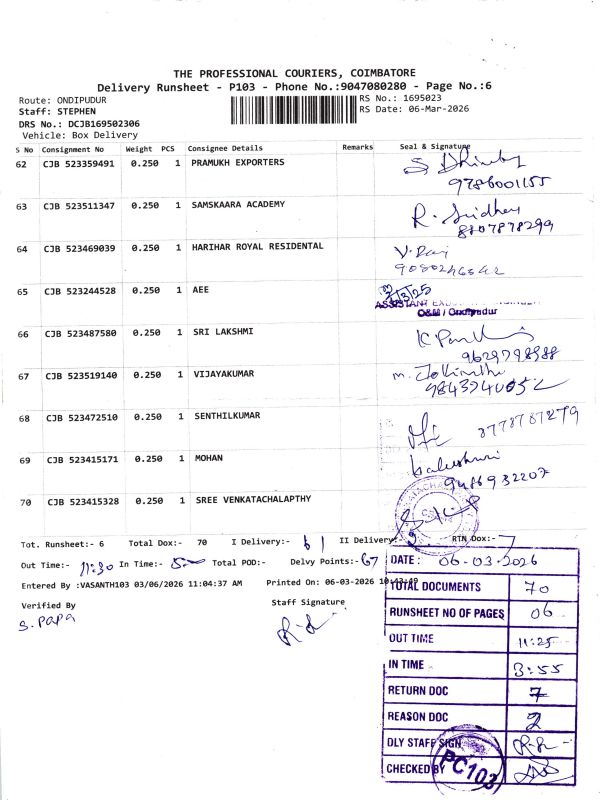 THE PROFESSIONAL COURIERS, COIMBATORE
Delivery Runsheet - P103 - Phone No.:9047080280 - Page No.:6
Route: ONDIPUDUR
RS No.: 1695023
Staff: STEPHEN
RS Date: 06-Mar-2026
DRS No.: DCJB169502306
Vehicle: Box Delivery
S No Consignment No Weight PCS Consignee Details Remarks Seal & Signature
62 CJB 523359491 0.250 1 PRAMUKH EXPORTERS
9786001155
63 CJB 523511347 0.250 1 SAMSKAARA ACADEMY
R. Sridhar
8107878299
64 CJB 523469039 0.250 1 HARIHAR ROYAL RESIDENTAL
V. Raj
9080246542
65 CJB 523244528 0.250 1 AEE
O&M / Ondipudur
66 CJB 523487580 0.250 1 SRI LAKSHMI
9629798988
67 CJB 523519140 0.250 1 VIJAYAKUMAR
9843740052
68 CJB 523472510 0.250 1 SENTHILKUMAR
8778787279
69 CJB 523415171 0.250 1 MOHAN
9486932207
70 CJB 523415328 0.250 1 SREE VENKATACHALAPTHY
Tot. Runsheet:- 6 Total Dox:- 70 I Delivery:- 61 II Delivery:- RTN Dox:- 7
Out Time:- 11:30 In Time:- Total POD:- Delvy Points:- 67
Entered By :VASANTH103 03/06/2026 11:04:37 AM Printed On: 06-03-2026
Verified By
Staff Signature
S. PAPA
DATE: 06-03-2026
TOTAL DOCUMENTS 70
RUNSHEET NO OF PAGES 06
OUT TIME 11:25
IN TIME 3:55
RETURN DOC 7
REASON DOC 2
DLY STAFF SIGN
CHECKED BY
PC103